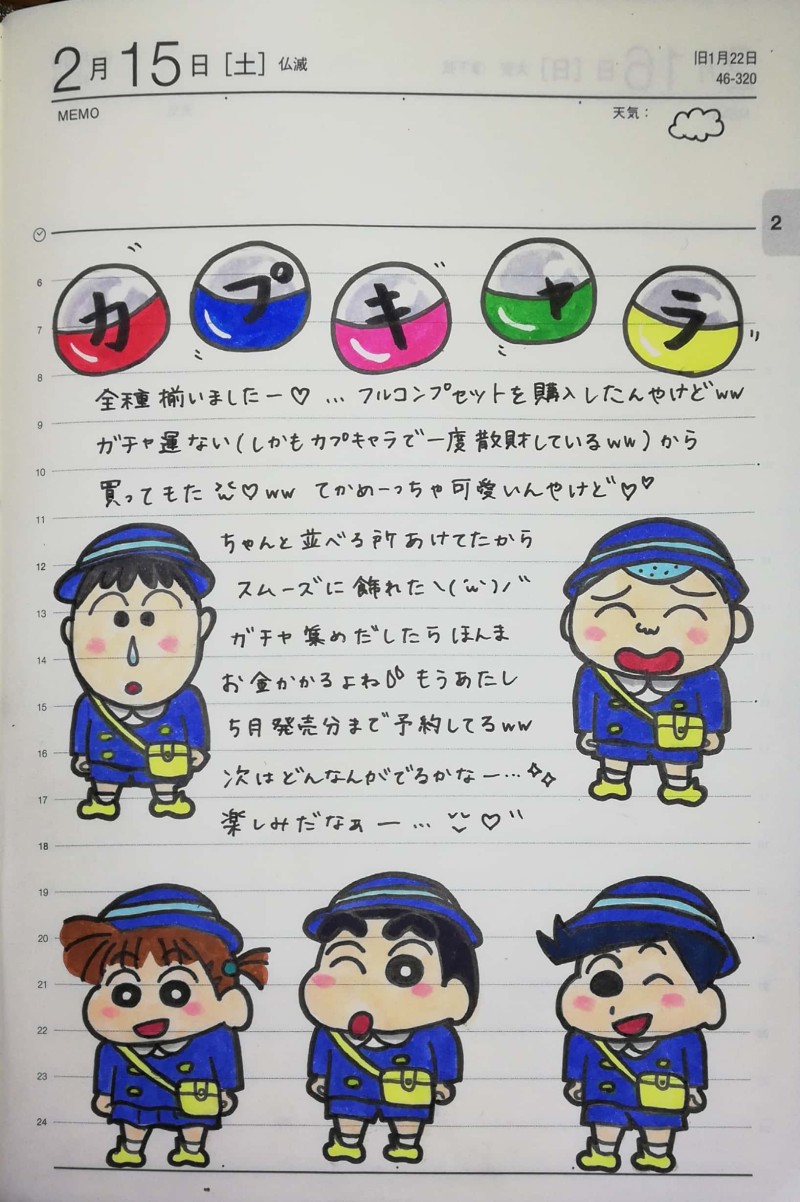 2月15日[土] 仏滅
旧1月22日
46-320
MEMO
天気：
2
カプキャラ
6
7
8
全種揃いましたー♡ … フルコンプセットを購入したんやけどww
9
ガチャ運ない(しかもカプキャラで一度散財しているww)から
10
買ってもた ♡ww てかめーっちゃ可愛いんやけど♡♡
11
ちゃんと並べる所あけてたから
12
スムーズに飾れた\(´ω`)/
13
ガチャ集めだしたらほんま
14
お金かかるよね もうあたし
15
5月発売分まで予約してるww
16
次はどんなんがでるかなー…
17
楽しみだなぁー… ♡
18
19
20
21
22
23
24